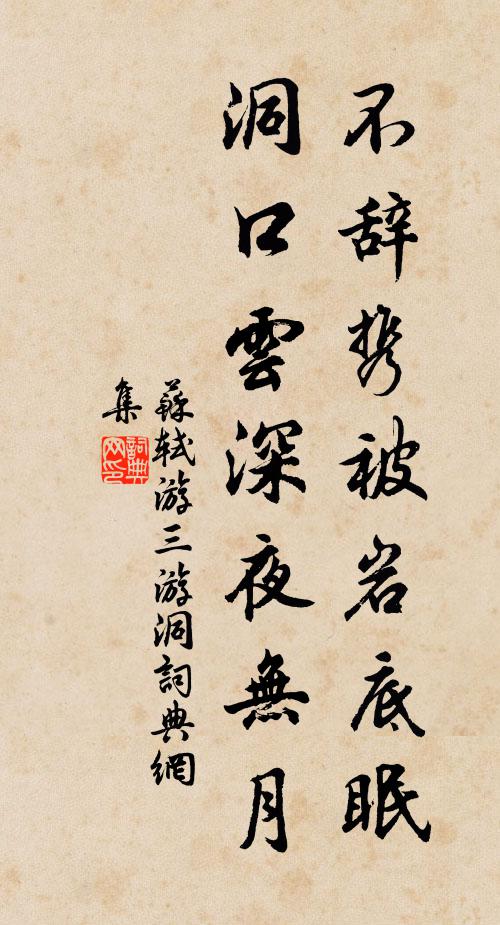 不辞携被岩底眠
洞口雲深夜無月
蘇軾游三游洞詞典網
集
詞典網印